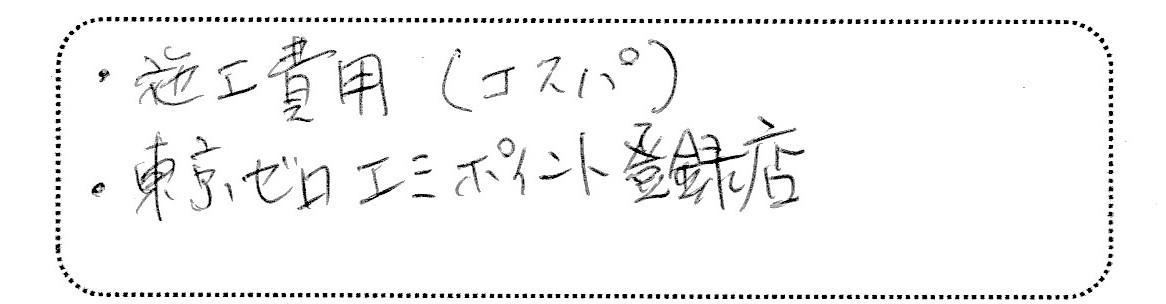 ・施工費用（コスパ）
・東京ゼロエミポイント登録店